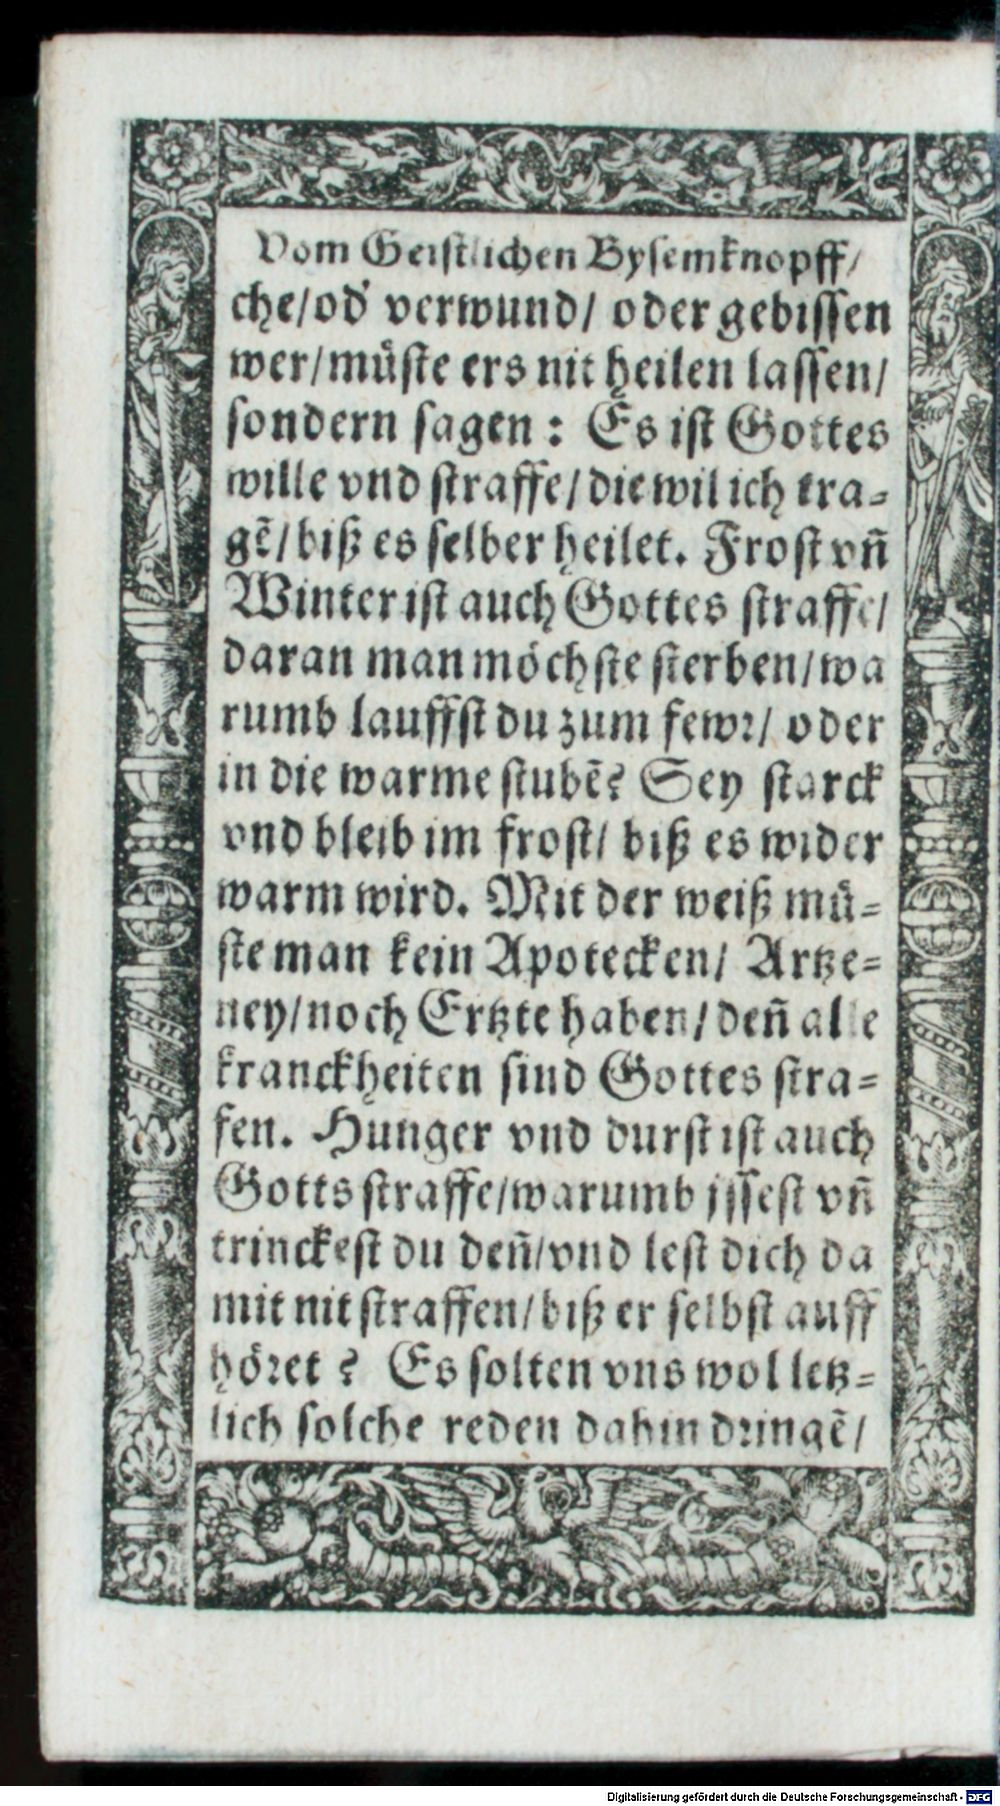 Vom Geistlichen Bysemknopff/
che/od' verwund/ oder gebissen
wer/müste ers nit heilen lassen/
sondern sagen: Es ist Gottes
wille vnd straffe/die wil ich tra=
gē/biß es selber heilet. Frost vñ
Winter ist auch Gottes straffe/
daran man möchste sterben/wa
rumb lauffst du zum fewr/ oder
in die warme stubē? Sey starck
vnd bleib im frost/ biß es wider
warm wird. Mit der weiß mü=
ste man kein Apotecken/ Artze=
ney/noch Ertzte haben/deñ alle
kranckheiten sind Gottes stra=
fen. Hunger vnd durst ist auch
Gotts straffe/warumb jssest vñ
trinckest du deñ/vnd lest dich da
mit nit straffen/biß er selbst auff
höret? Es solten vns wol letz=
lich solche reden dahin dringē/
Digitalisierung gefördert durch die Deutsche Forschungsgemeinschaft - DFG